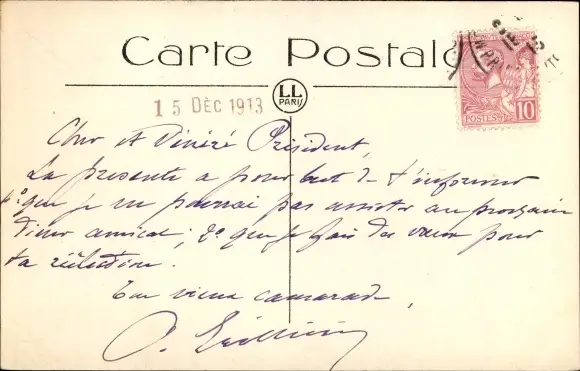 Carte Postale
LL
PARIS
15 DÉC 1913
10
POSTES
Cher et Vénéré Président,
La présente a pour but de t'informer
1º que je ne pourrai pas assister au prochain
diner amical ; 2º que je fais des vœux pour
ta réélection.
Ton vieux camarade,